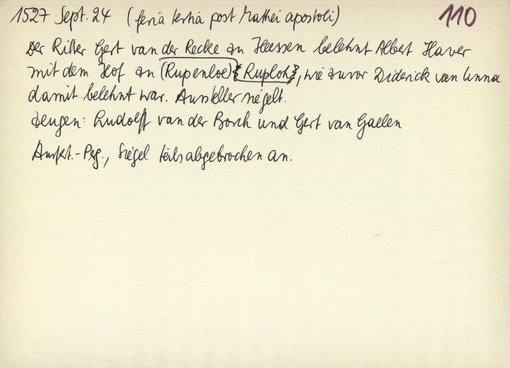 1527 Sept. 24 (feria tertia post Mathei apostoli) 110
Der Ritter Gert van der Recke zu Heessen belehnt Albert Haver
mit dem Hof zu (Rupenloe) {Ruploh}, wie zuvor Diderick van Unna
damit belehnt war. Aussteller siegelt.
Zeugen: Rudolff van der Borch und Gert van Galen
Ausf.-Perg., Siegel teils abgebrochen an.